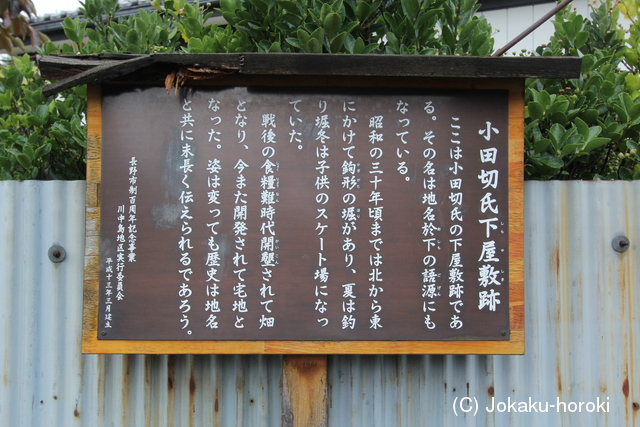 小田切氏下屋敷跡
ここは小田切氏の下屋敷跡であ
る。その名は地名於下の語源にも
なっている。
昭和の三十年頃までは北から東
にかけて鉤形の堀があり、夏は釣
り堀冬は子供のスケート場になっ
ていた。
戦後の食糧難時代開墾されて畑
となり、今また開発されて宅地と
なった。姿は変っても歴史は地名
と共に末長く伝えられるであろう。
長野市制百周年記念事業
川中島地区実行委員会
平成十三年三月建立
(C) Jokaku-horoki